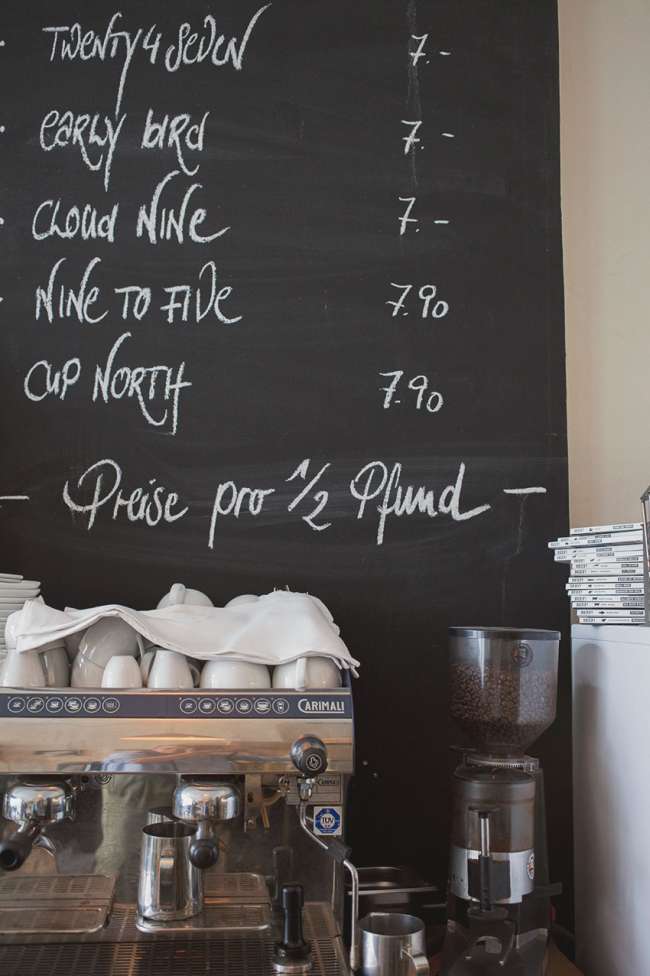 TWENTY 4 SEVEN 7.-
early bird 7.-
CLOUD NINE 7.-
NINE TO FIVE 7.90
CUP NORTH 7.90
— Preise pro 1/2 Pfund —
CARIMALI
TÜV